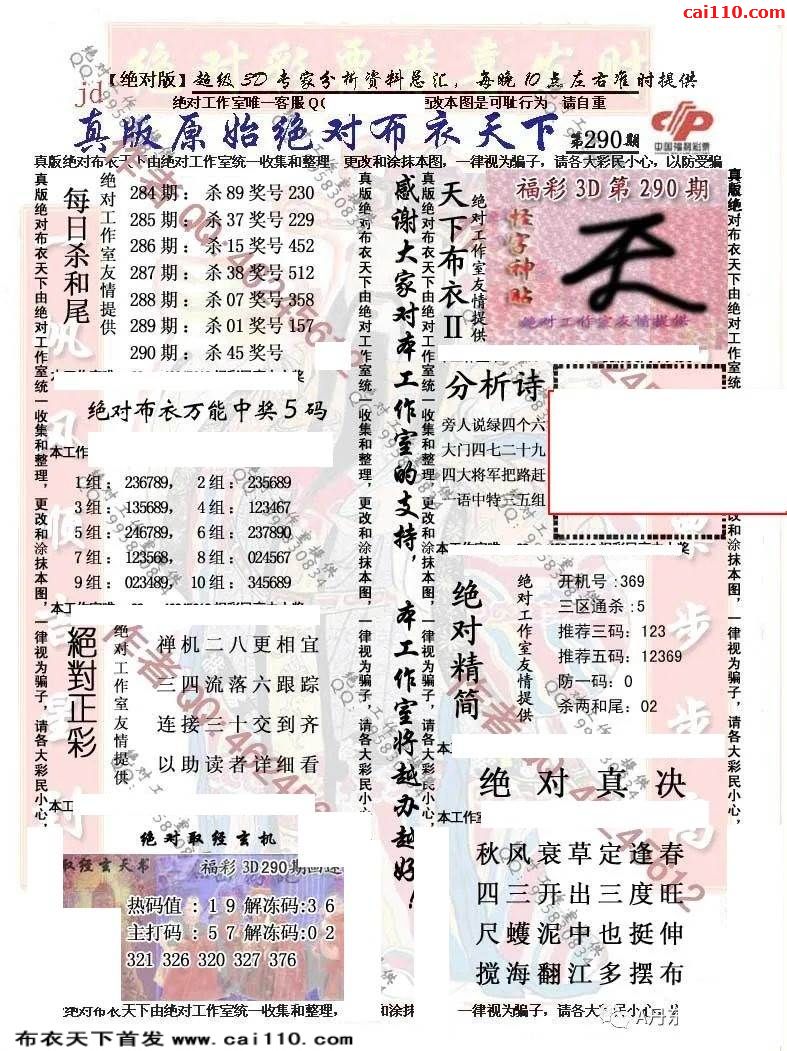 cai110.com
【绝对版】超级3D专家分析资料总汇，每晚10点左右准时提供
jd
绝对工作室唯一客服Q(
改本图是可耻行为 请自重
真版原始绝对布衣天下
第290期
中国福利彩票
真版绝对布衣天下由绝对工作室统一收集和整理，更改和涂抹本图，一律视为骗子，请各大彩民小心，以防受骗
每日杀和尾
绝对工作室友情提供
284期：杀89奖号230
285期：杀37奖号229
286期：杀15奖号452
287期：杀38奖号512
288期：杀07奖号358
289期：杀01奖号157
290期：杀45奖号
绝对布衣万能中奖5码
本工作
1组：236789，2组：235689
3组：135689，4组：123467
5组：246789，6组：237890
7组：123568，8组：024567
9组：023489，10组：345689
絕對正彩
绝对工作室友情提供
禅机二八更相宜
三四流落六跟踪
连接三十交到齐
以助读者详细看
本工
绝对取经玄机
取经玄天书
福彩3D290期
热码值：19解冻码:36
主打码：57解冻码:02
321 326 320 327 376
真版绝对布衣天下由绝对工作室统一收集和整理，更改和涂抹本图，一律视为骗子，请各大彩民小心，
感谢大家对本工作室的支持，本工作室将越办越好！
天下布衣II
绝对工作室友情提供
福彩3D第290期
怪字神贴
绝对工作室友情提供
分析诗
旁人说绿四个六
大门四七二十九
四大将军把路赶
一语中特三五组
绝对精简
绝对工作室友情提供
开机号:369
三区通杀:5
推荐三码：123
推荐五码：12369
防一码：0
杀两和尾：02
绝对真决
本工作室
秋风衰草定逢春
四三开出三度旺
尺蠖泥中也挺伸
搅海翻江多摆布
绝对布衣天下由绝对工作室统一收集和整理，
和涂抹本图，一律视为骗子，请各大彩民小心，
布衣天下首发 www.cai110.com